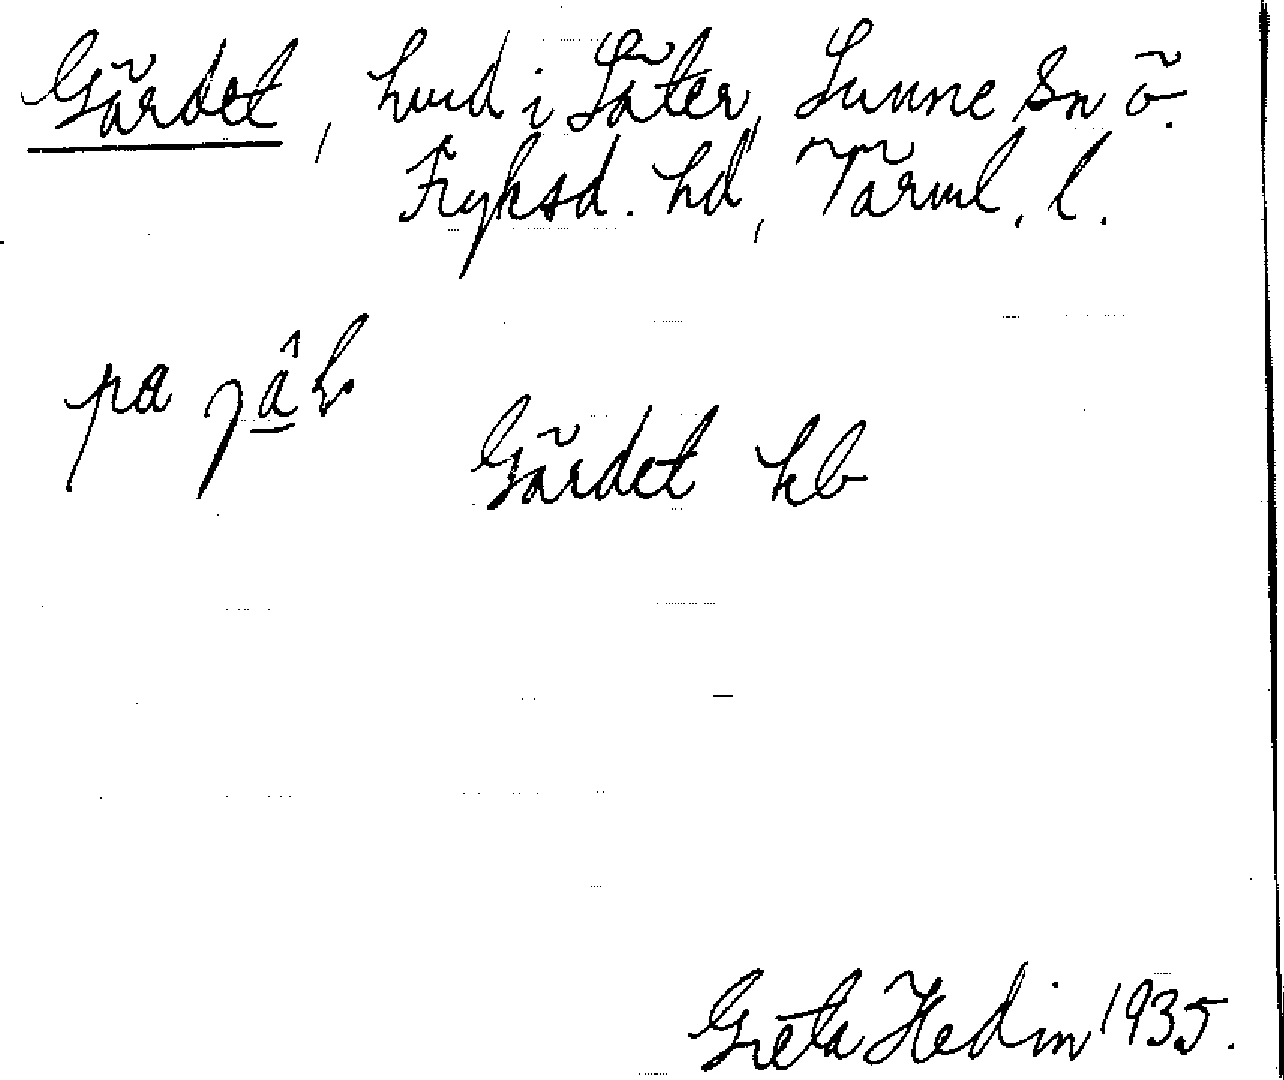 Gärdet, hmd i Säter, Sunne sn ö.
Fryksd. hd, Värml. l.
pa
Gärdet kb
Greta Hedin 1935.